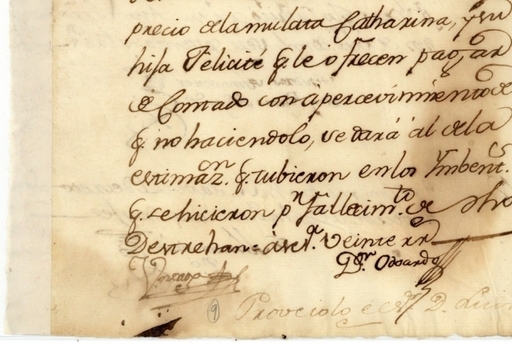 precio de la mulata Catharina, y su
hija Felicite q.e le ofrecen pagar
de Contado con apercevimiento de
q. no haciendolo, se dará al de la
estimaz.on q. tubieron en los Ymbent.s
q. se hicieron p.r fallecim.to de dho
Destrehan = vr.
D.or Odoardo
9
Proveiolo D. Luis